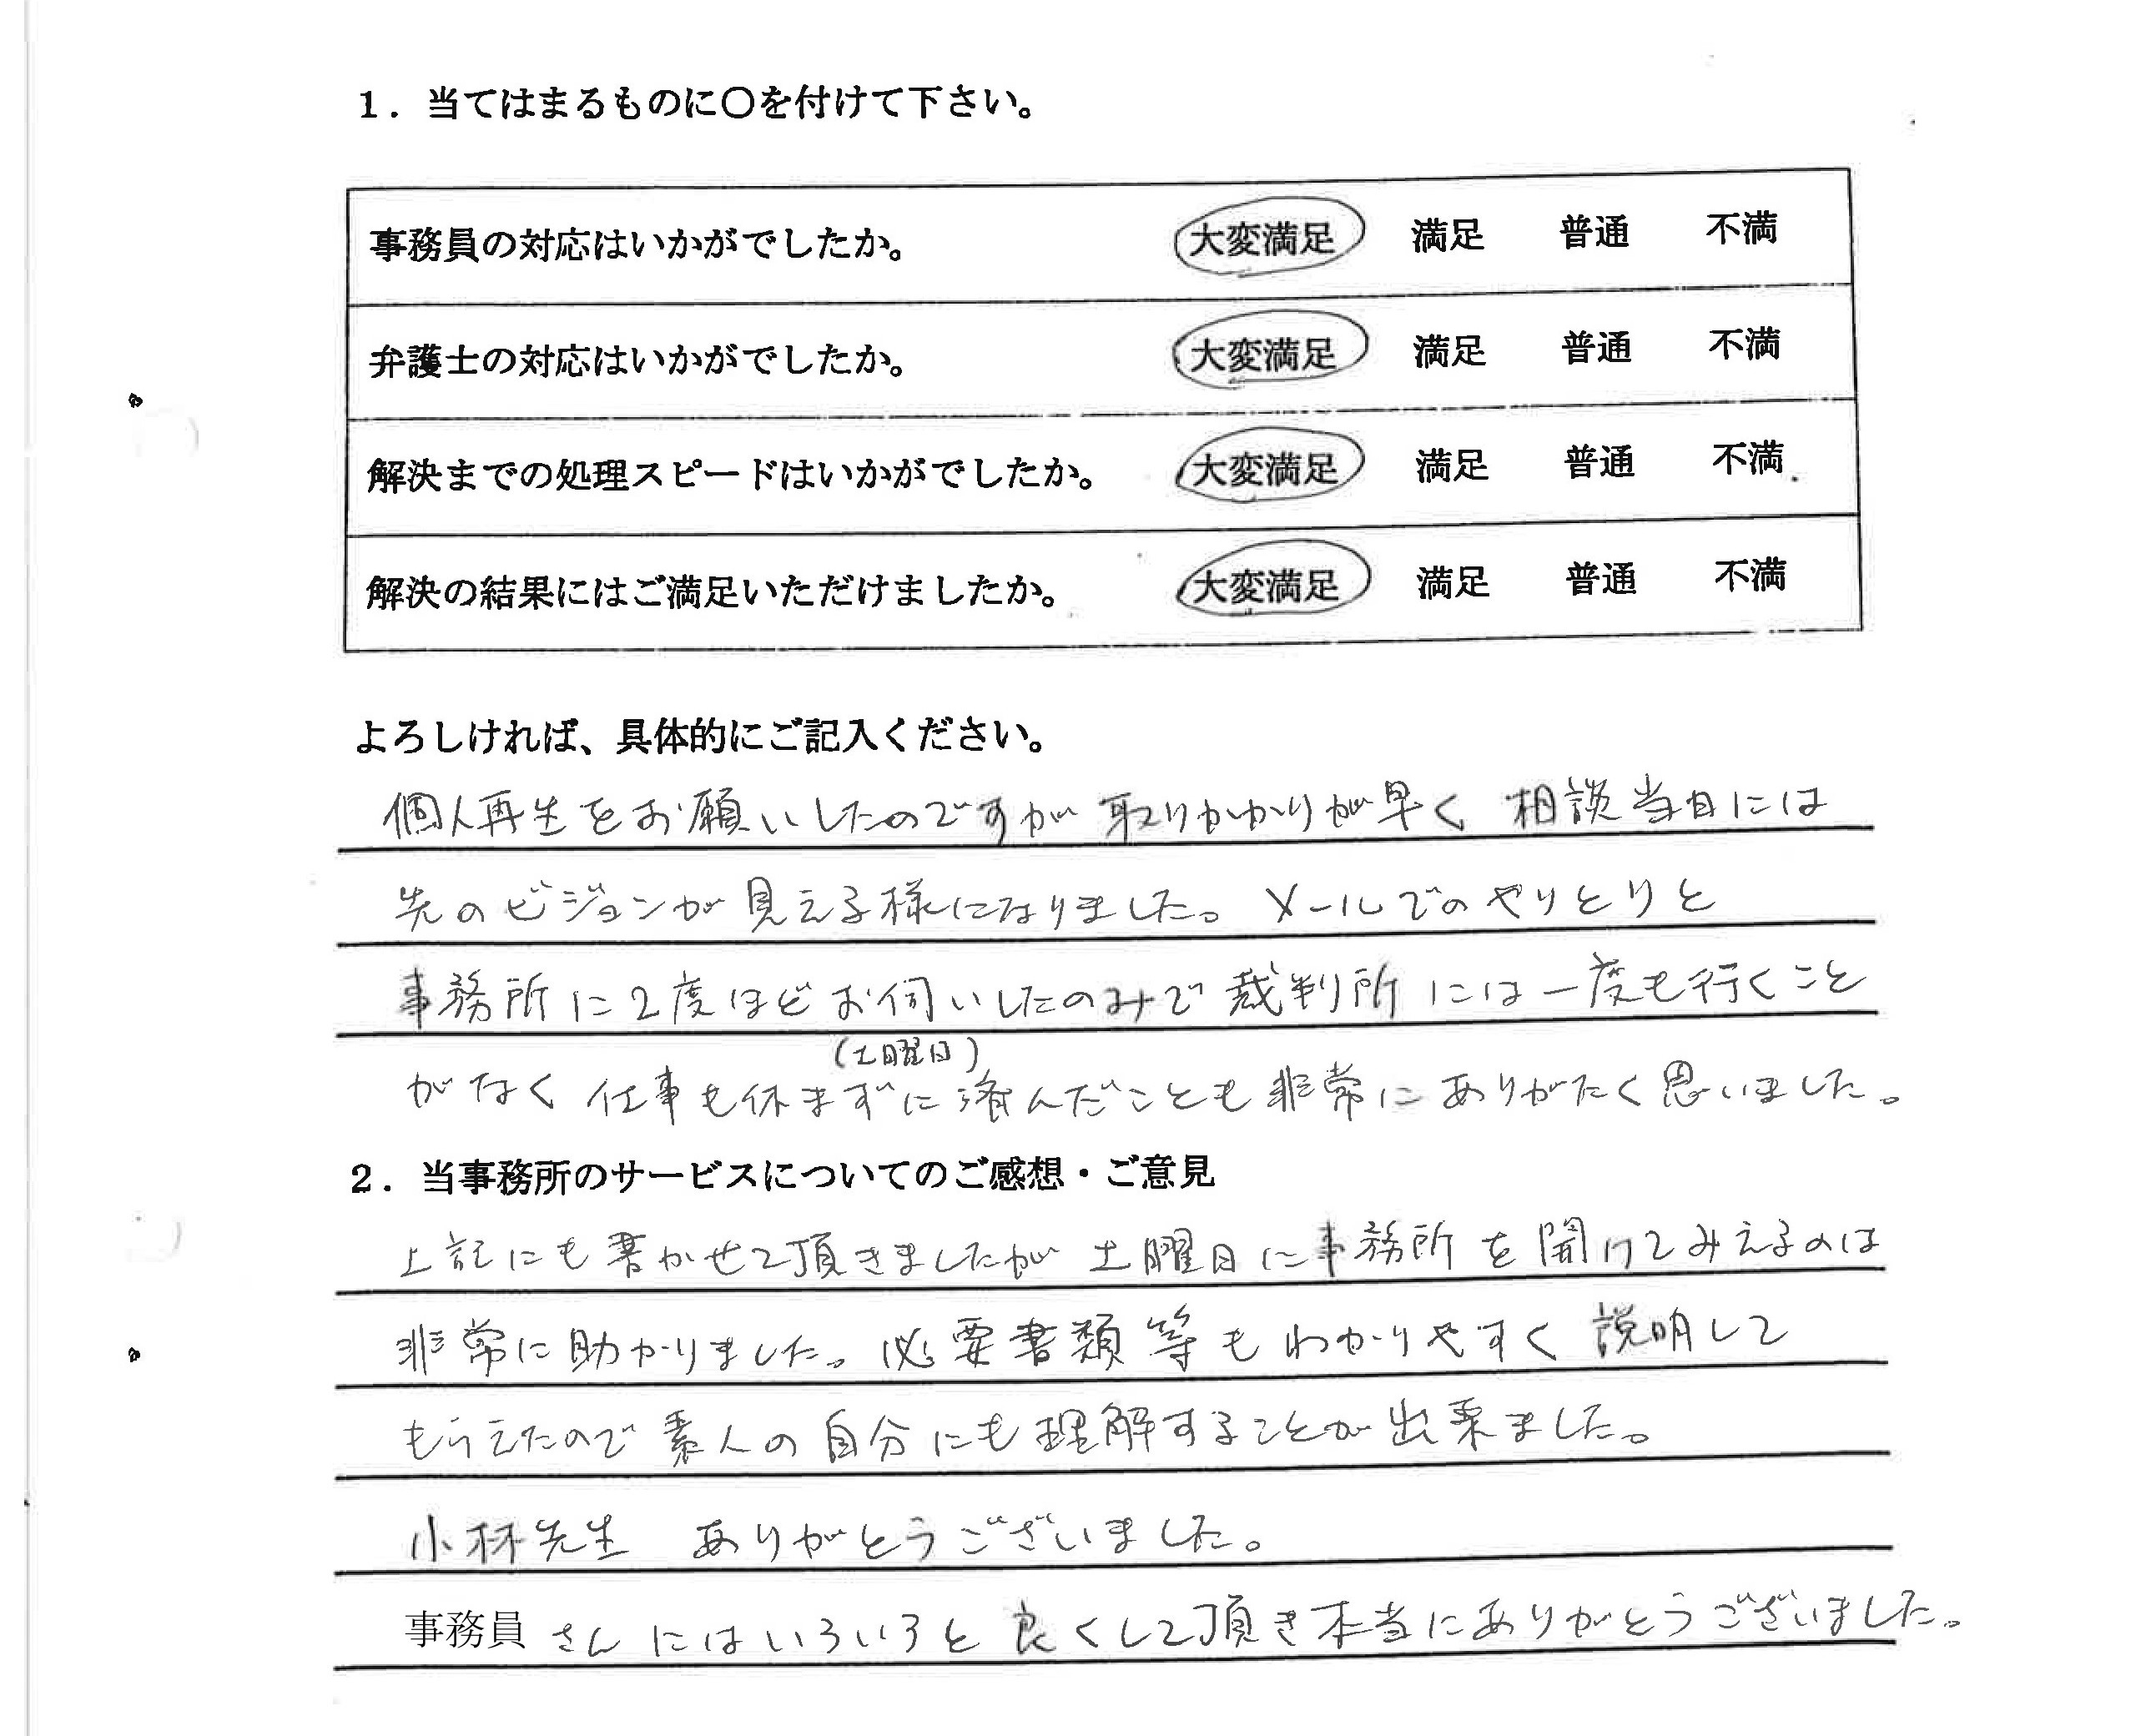 1．当てはまるものに〇を付けて下さい。
事務員の対応はいかがでしたか。 大変満足 満足 普通 不満
弁護士の対応はいかがでしたか。 大変満足 満足 普通 不満
解決までの処理スピードはいかがでしたか。 大変満足 満足 普通 不満
解決の結果にはご満足いただけましたか。 大変満足 満足 普通 不満
よろしければ、具体的にご記入ください。
個人再生をお願いしたのですが 取りかかりが早く 相談当日には
先のビジョンが見える様になりました。メールでのやりとりと
事務所に2度ほどお伺いしたのみで裁判所には一度も行くこと
(土曜日)
がなく 仕事も休まずに済んだことも非常にありがたく思いました。
2．当事務所のサービスについてのご感想・ご意見
上記にも書かせて頂きましたが 土曜日に事務所を開けてみえるのは
非常に助かりました。必要書類等もわかりやすく説明して
もらえたので素人の自分にも理解することが出来ました。
小林先生 ありがとうございました。
事務員さんにはいろいろと良くして頂き本当にありがとうございました。